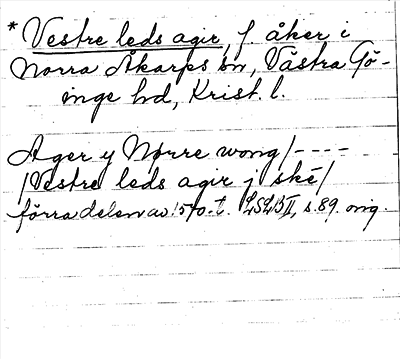 * Vestre leds agir, f. åker i
Norra Åkarps sn, Västra Gö-
inge hd, Krist. l.
Ager y Nørre wong/----
/Vestre leds agir j ské/
förra delen av 1500.t. LSLB II, s. 89. orig.